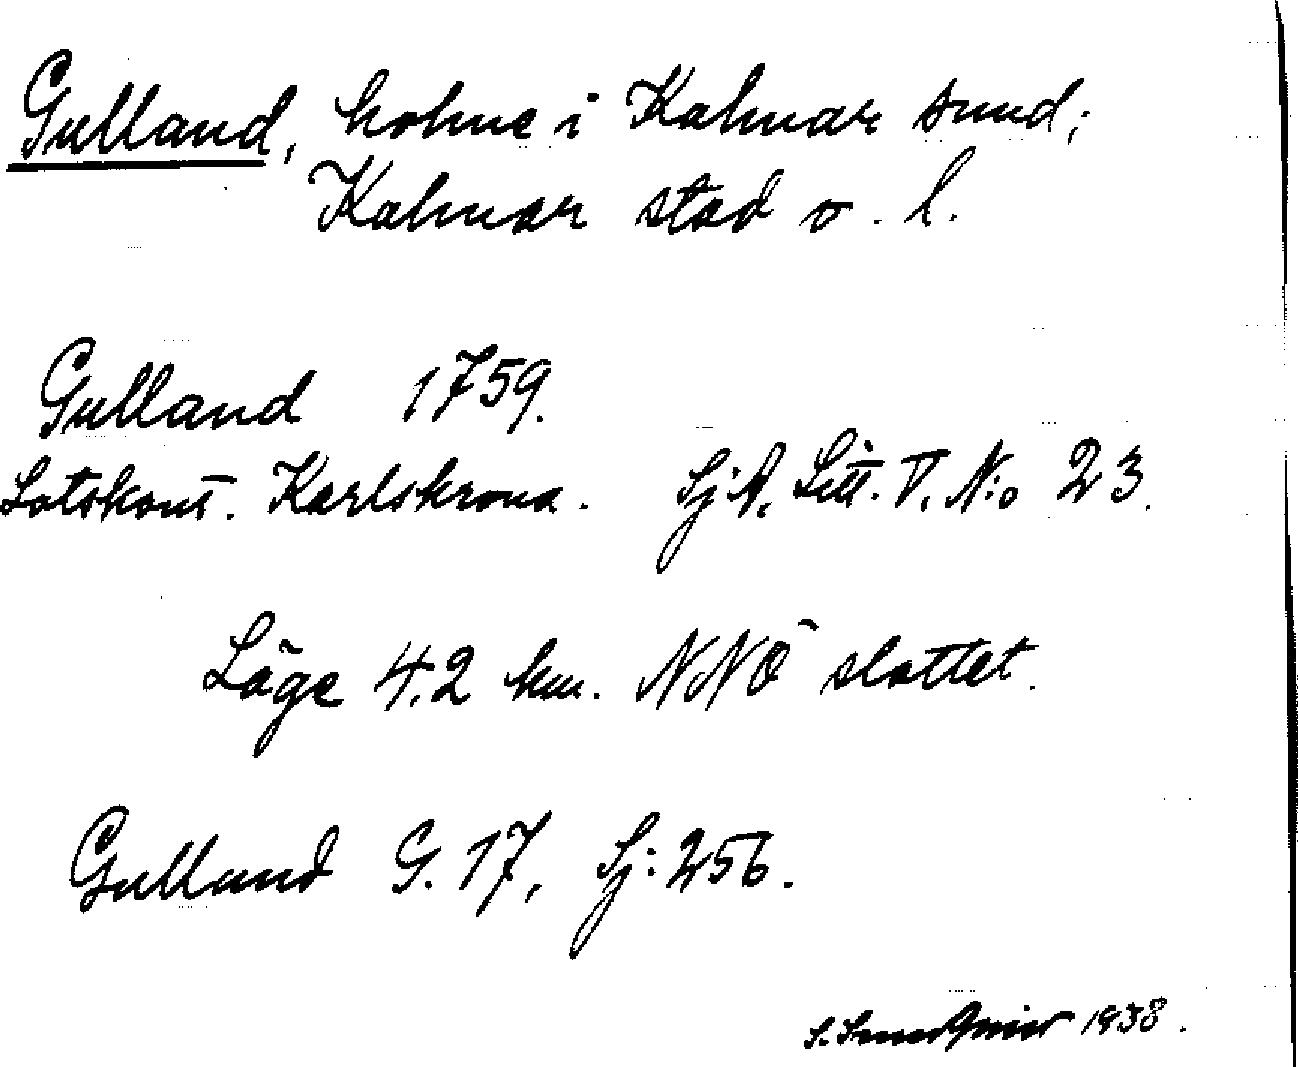 Gulland, holme i Kalmar sund;
Kalmar stad o. l.
Gulland 1759.
Lotskont. Karlskrona. SjA. Litt. V. N:o 23.
Läge 4,2 km. NNÖ slottet.
Gulland G. 17, Sj: 256.
S. 1938.